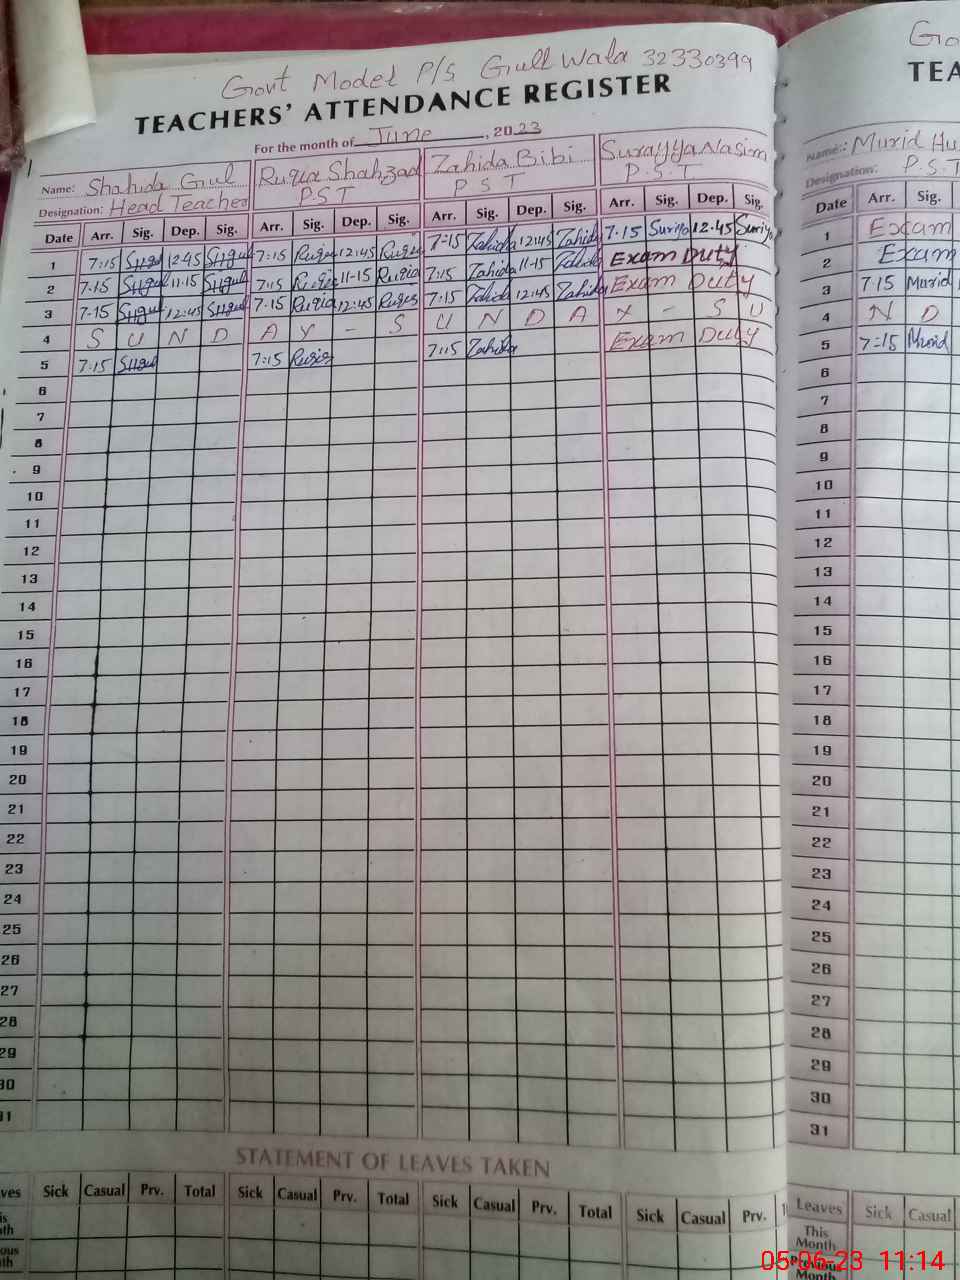 Govt Model P/S Gull Wala 32330399
TEACHERS' ATTENDANCE REGISTER
For the month of June, 2023
Name: Shahida Gul Ruqia Shahzad Zahida Bibi Surayya Nasim
Designation: Head Teacher PST PST P.S.T
Date Arr. Sig. Dep. Sig. Arr. Sig. Dep. Sig. Arr. Sig. Dep. Sig. Arr. Sig. Dep. Sig.
1 7:15 SHgul 12:45 SHgul 7:15 Ruqia 12:45 Ruqia 7:15 Zahida 12:45 Zahida 7.15 Suriya 12.45 Suriya
2 7:15 SHgul 11:15 SHgul 7:15 Ruqia 11-15 Ruqia 7:15 Zahida 11-15 Zahida Exam Duty
3 7:15 SHgul 12:45 SHgul 7:15 Ruqia 12:45 Ruqia 7:15 Zahida 12:45 Zahida Exam Duty
4 S U N D A Y - S U N D A Y - S U
5 7:15 SHgul 7:15 Ruqia 7:15 Zahida Exam Duty
6
7
8
9
10
11
12
13
14
15
16
17
18
19
20
21
22
23
24
25
26
27
28
29
30
31
STATEMENT OF LEAVES TAKEN
ves Sick Casual Prv. Total Sick Casual Prv. Total Sick Casual Prv. Total Sick Casual Prv.
is
nth
ous
nth
Go
TEA
Name: Murid Hu
Designation: P.S.T
Date Arr. Sig.
1 Exam
2 Exam
3 7:15 Murid
4 N D
5 7=15 Murid
6
7
8
9
10
11
12
13
14
15
16
17
18
19
20
21
22
23
24
25
26
27
28
29
30
31
Leaves Sick Casual
This
Month
Previous
Month
05-06-23 11:14